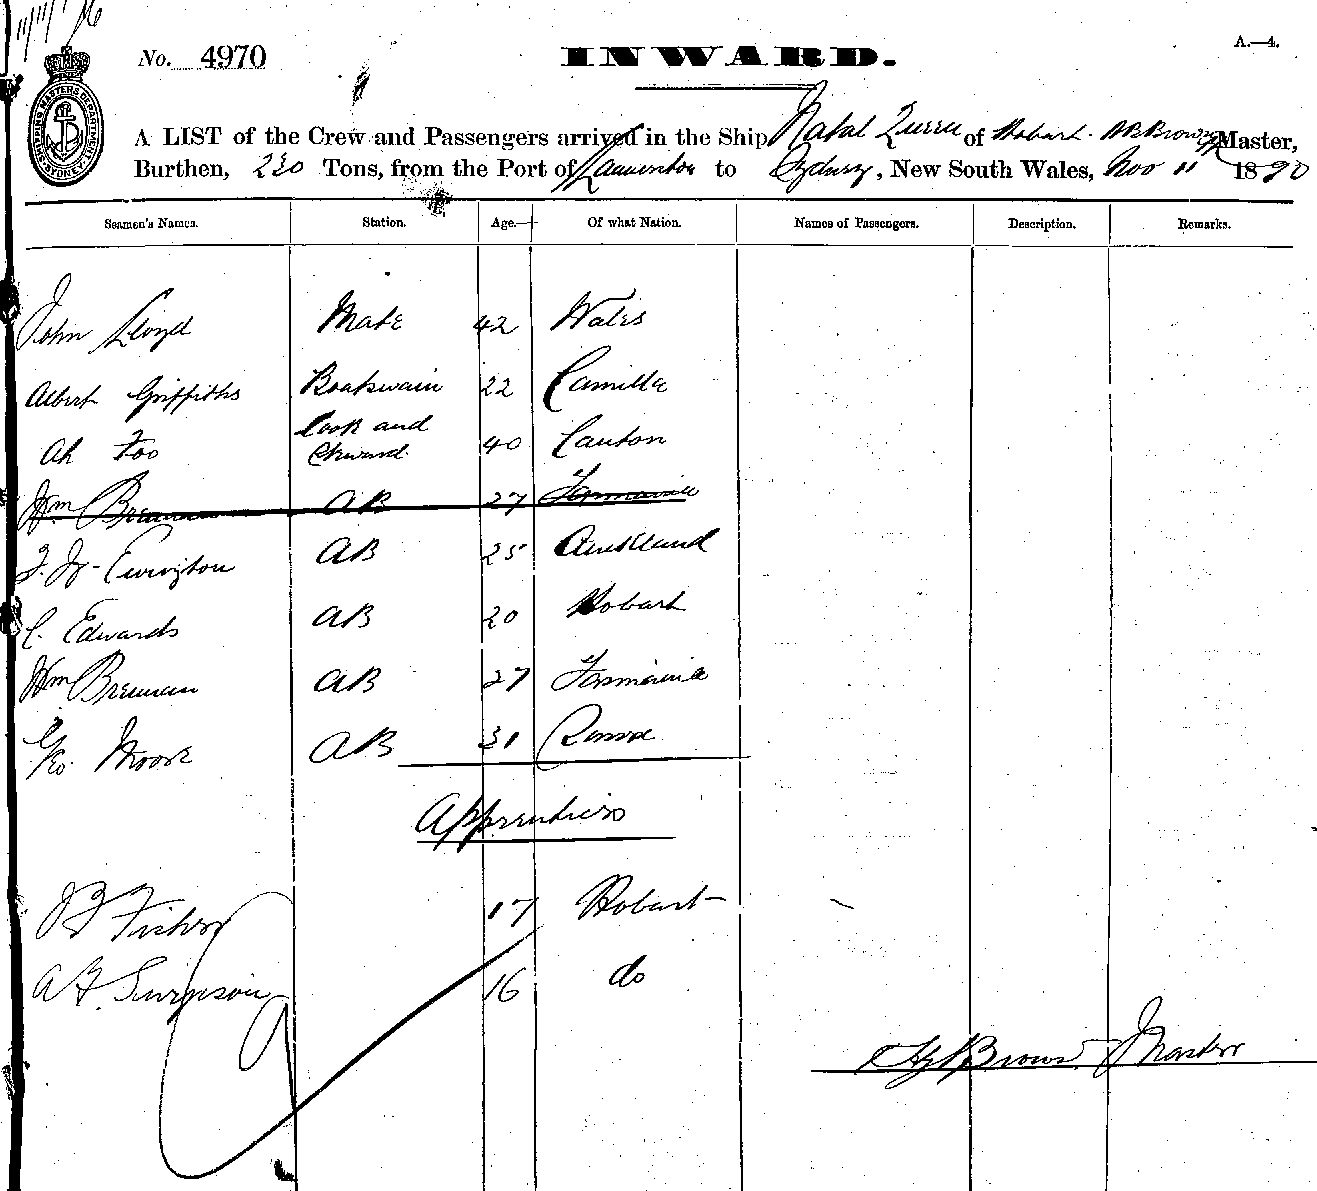 No. 4970
INWARD.
A.—4.
SHIPPING MASTERS DEPARTMENT. SYDNEY
A LIST of the Crew and Passengers arrived in the Ship Natal Queen of Hobart. Brown Master,
Burthen, 230 Tons, from the Port of Launceston to Sydney, New South Wales, Nov 11 1890
Seamen's Names. Station. Age. Of what Nation. Names of Passengers. Description. Remarks.
John Lloyd Mate 42 Wales
Albert Griffiths Boatswain 22 Camilla
Ah Foo Cook and Steward 40 Canton
Wm Brennan AB 27 Tasmania
Ewington AB 25 Auckland
C. Edwards AB 20 Hobart
Wm Brennan AB 27 Tasmania
Geo. Moore AB 31
Apprentices
Fisher 17 Hobart
A F. Simpson 16 do
Brown Master